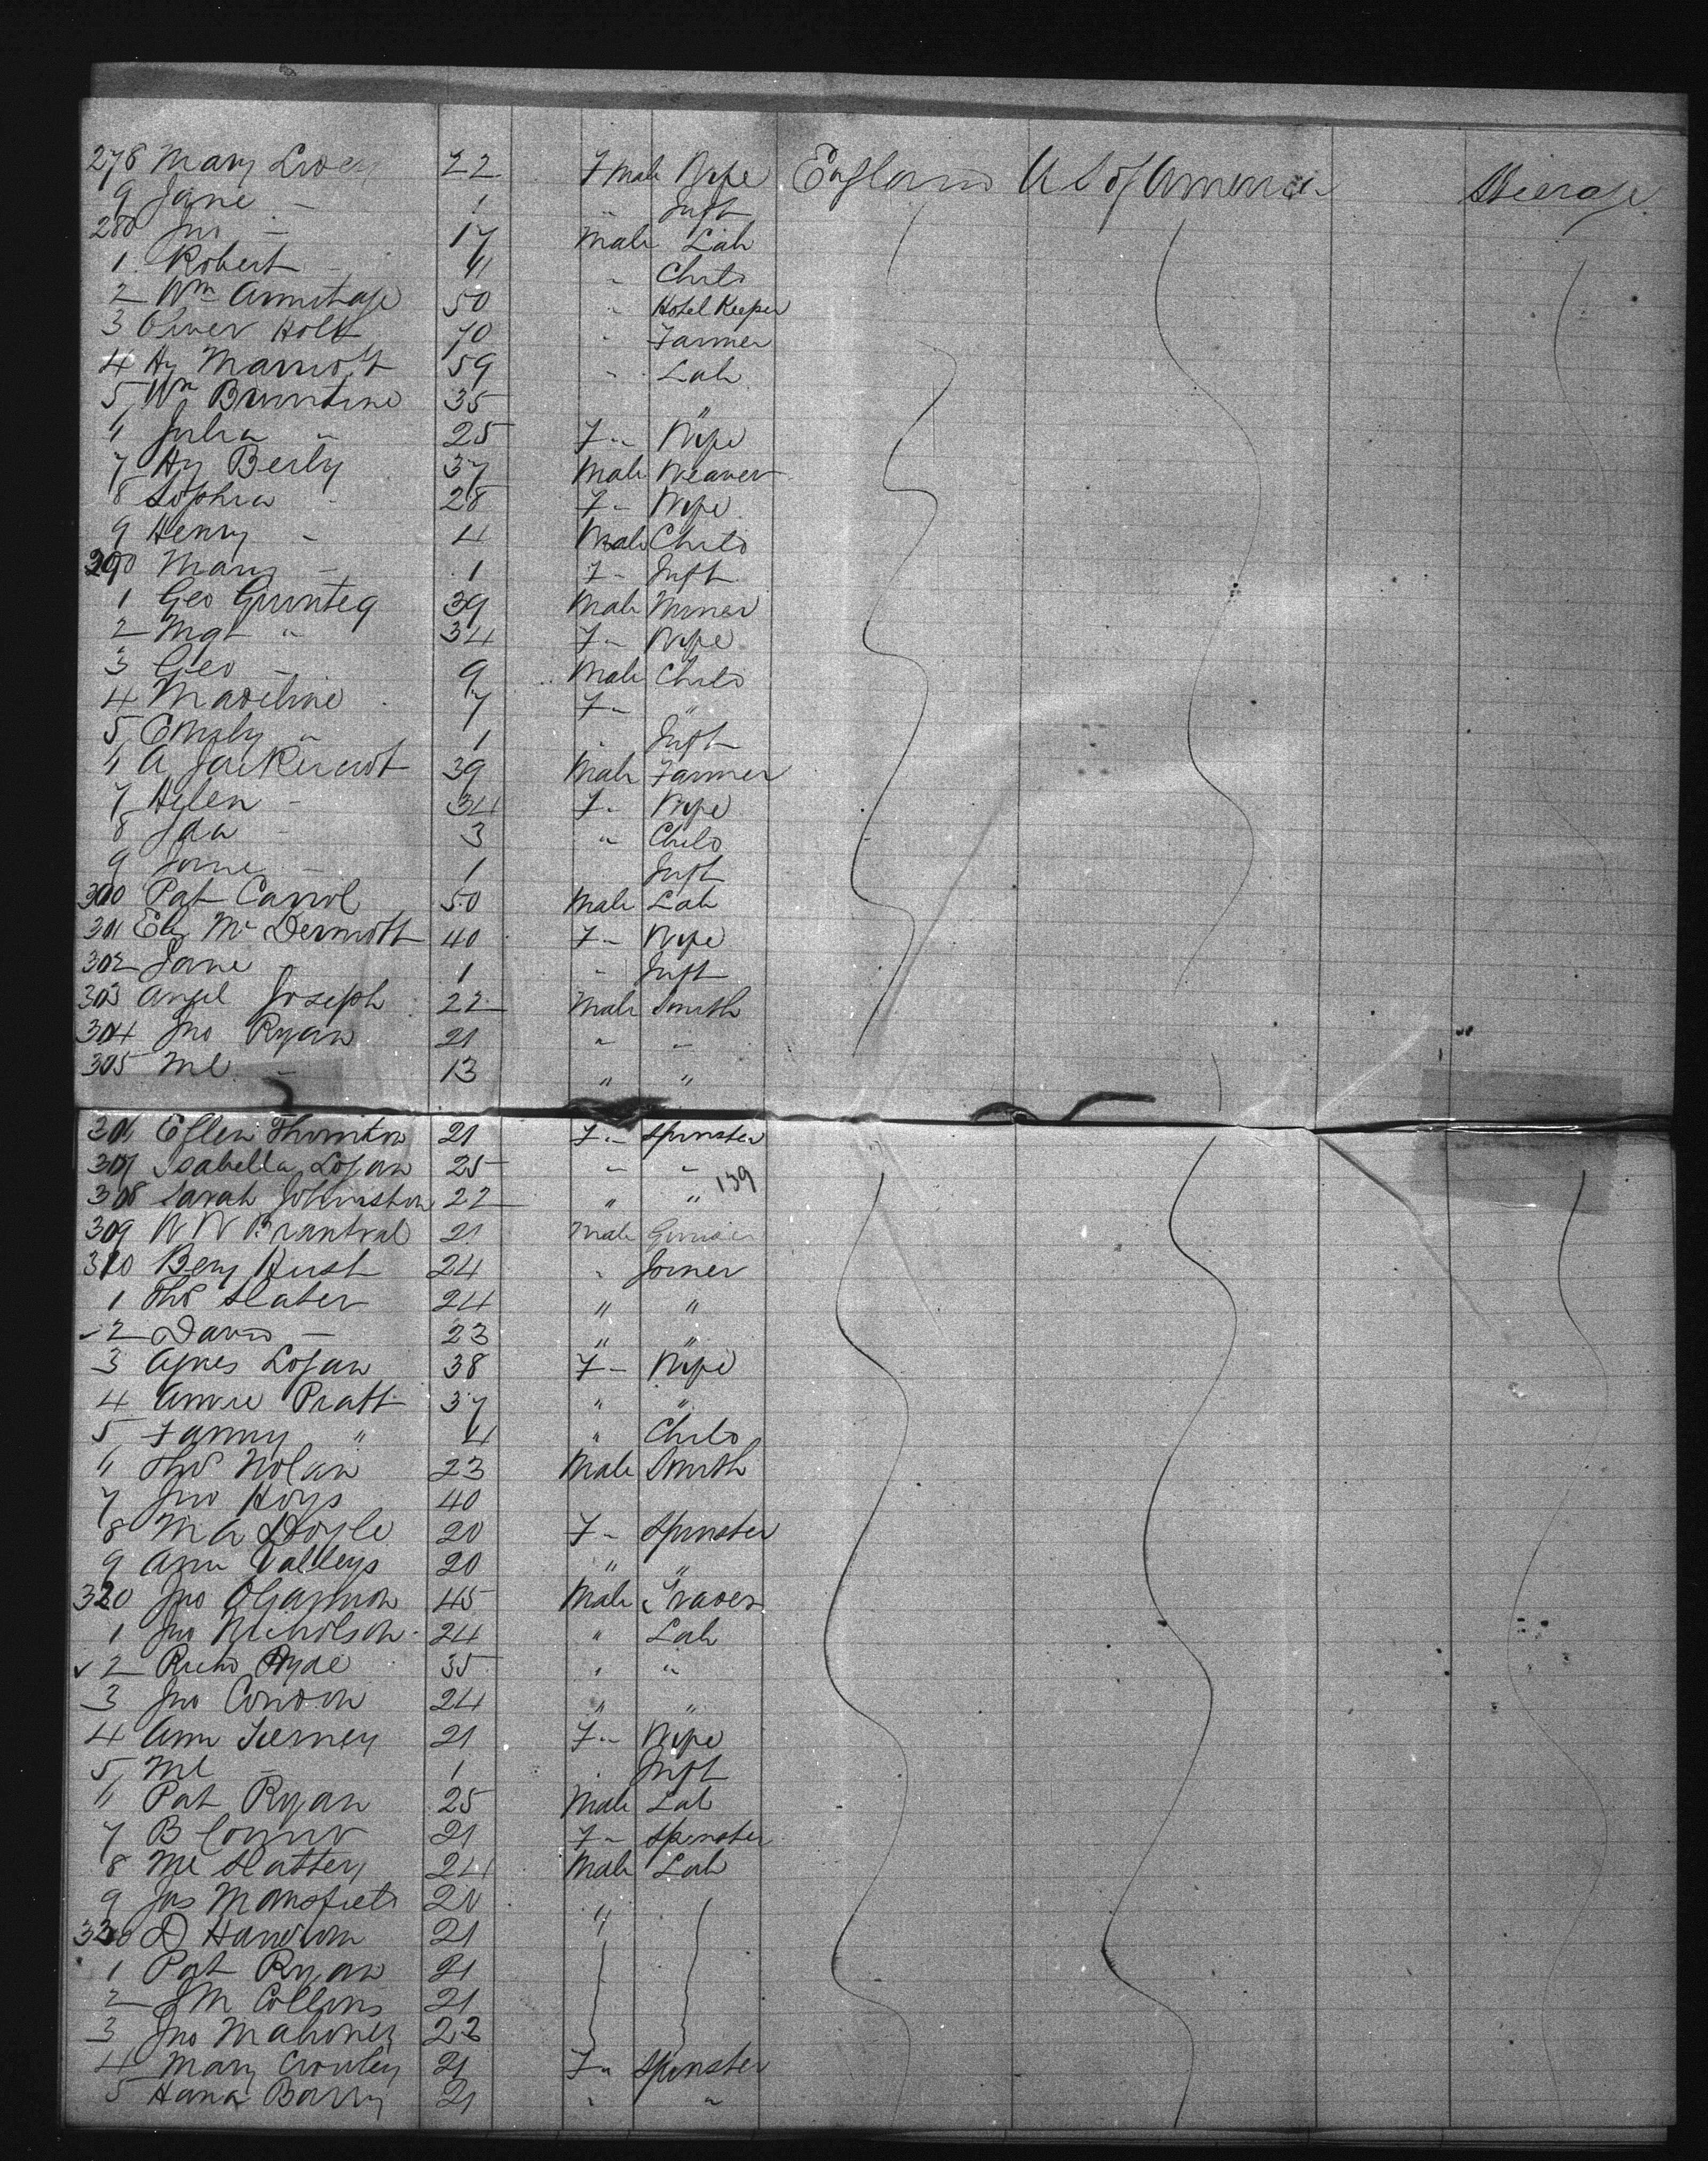 278 Mary 22 Fmale Wife England U S of America Steerage
9 Jane - 1 " Inft
280 Jno - 17 Male Lab
1 Robert - 11 " Child
2 Wm Armitage 50 " Hotel Keeper
3 Oliver Holt 70 " Farmer
4 Hy Marriott 59 " Lab
5 Wm Bruntine 35 "
6 Julia " 25 F " Wife
7 Hy Berly 37 Male Weaver
8 Sophia - 28 F - Wife
9 Henry - 4 Male Child
290 Mary - 1 F - Inft
1 Geo 39 Male Miner
2 Mgt " 34 F " Wife
3 Geo - 9 Male Child
4 Madeline 7 F " "
5 Emily " 1 " Inft
6 A 39 Male Farmer
7 Helen - 34 F - Wife
8 Ida - 3 " Child
9 - 1 Inft
300 Pat Carrol 50 Male Lab
301 Eliz McDermott 40 F - Wife
302 Jane - 1 " Inft
303 Angel Joseph 22 Male Smith
304 Jno Ryan 21 " "
305 Ml - 13 " "
306 Ellen Thornton 21 F " Spinster
307 Isabella Logan 25 " "
308 Sarah Johnston 22 " " 139
309 W W 21 Male
310 Benj Hust 24 " Joiner
1 Thos Slater 24 " "
2 David - 23 " "
3 Agnes Logan 38 F - Wife
4 Annie Pratt 37 " "
5 Fanny " 4 " Child
6 Thos Nolan 23 Male Smith
7 Jno Hoys 40
8 M A Doyle 20 F - Spinster
9 Ann Valleys 20 " "
320 Jno OGannon 45 Male
1 Jno Nicholson 24 " Lab
2 Richd Hyde 35 " "
3 Jno Condon 24 " "
4 Ann Tierney 21 F " Wife
5 Ml - 1 " Inft
6 Pat Ryan 25 Male Lab
7 B Connor 21 F - Spinster
8 Ml Slattery 24 Male Lab
9 Jas Mansfield 20 "
330 D 21
1 Pat Ryan 21
2 J M Collins 21
3 Jno Mahoney 22
4 Mary Crowley 21 F " Spinster
5 Hana Barry 21 " "